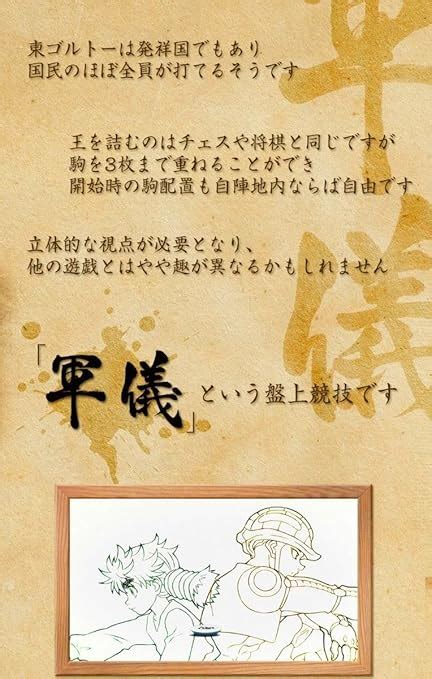 東ゴルトーは発祥国でもあり
国民のほぼ全員が打てるそうです
王を詰むのはチェスや将棋と同じですが
駒を3枚まで重ねることができ
開始時の駒配置も自陣地内ならば自由です
立体的な視点が必要となり、
他の遊戯とはやや趣が異なるかもしれません
「軍儀」という盤上競技です
軍儀